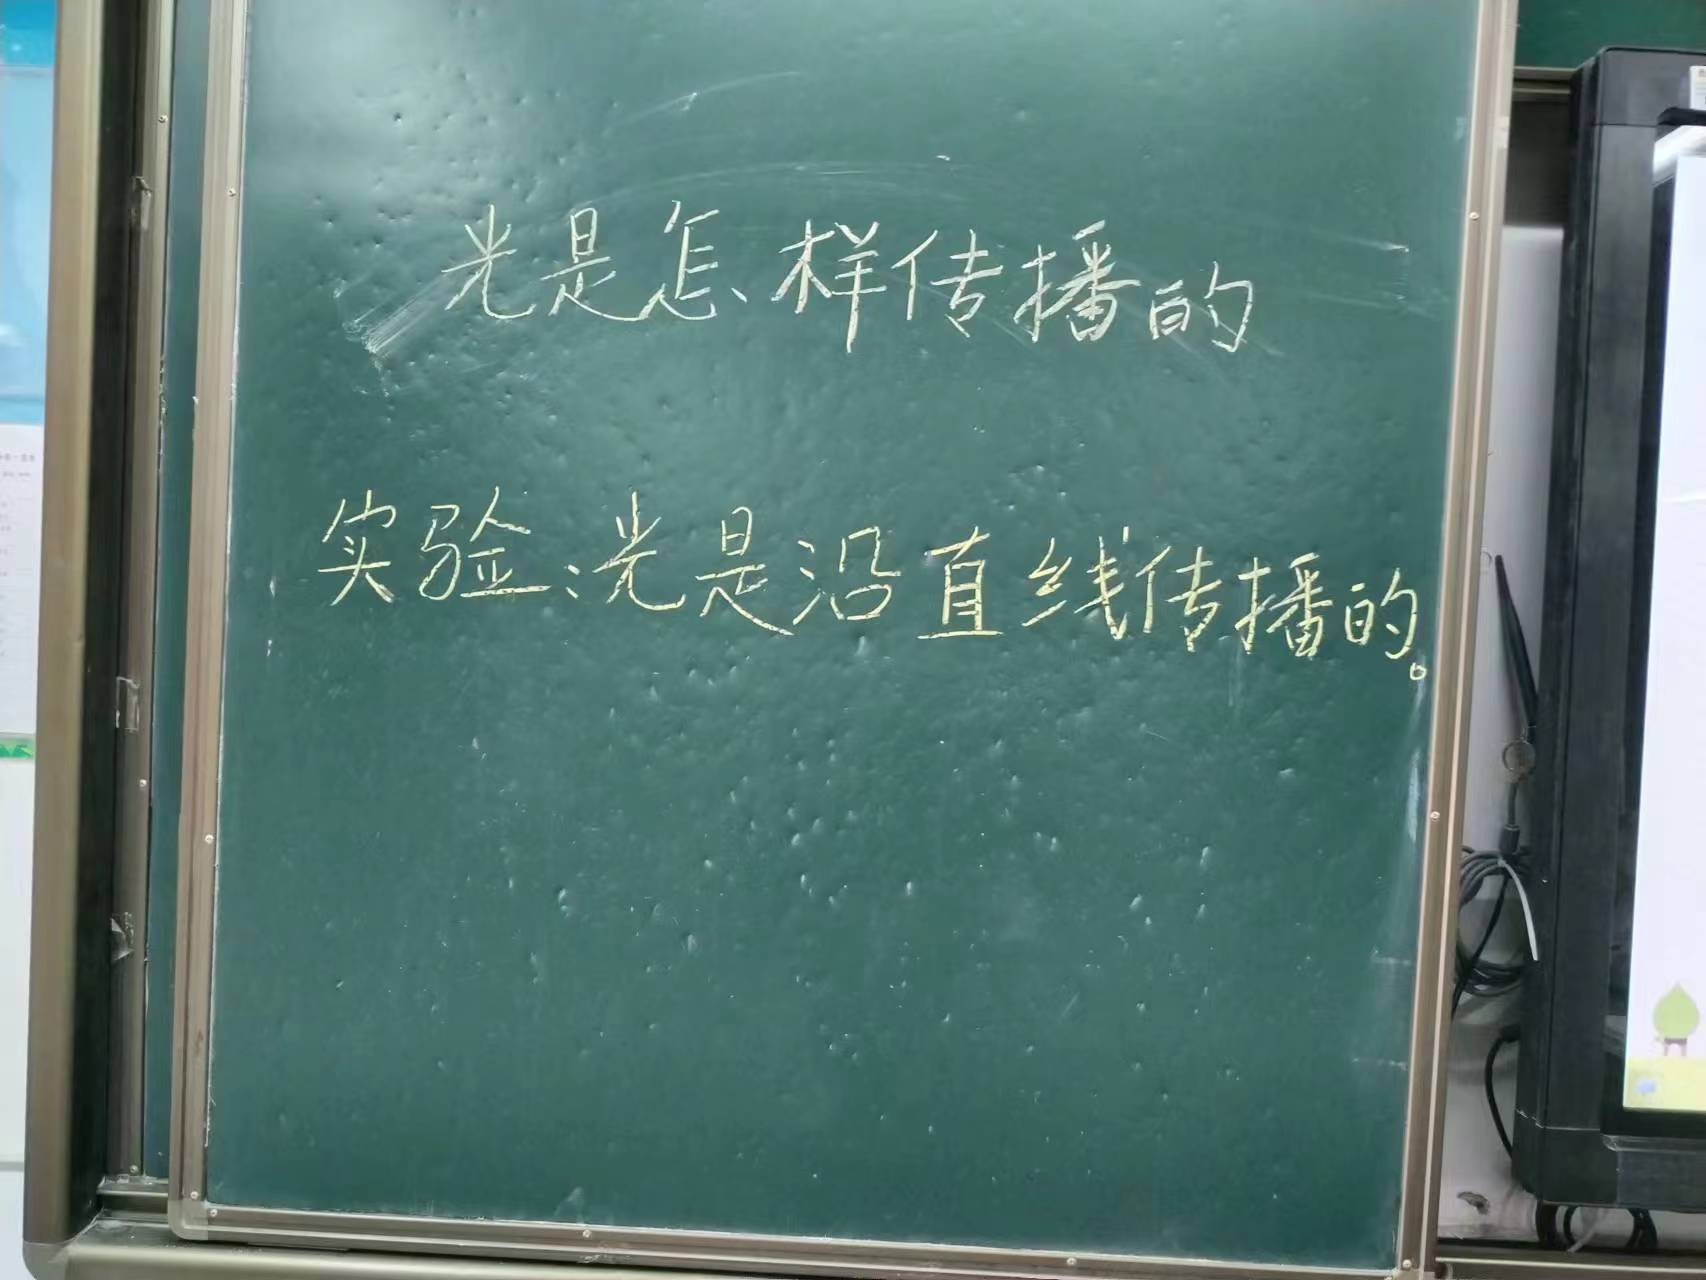 光是怎样传播的
实验:光是沿直线传播的。